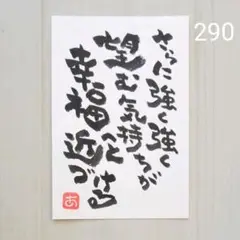 290
さらに強く強く
望む気持ちが
幸福へと
近づける
あ